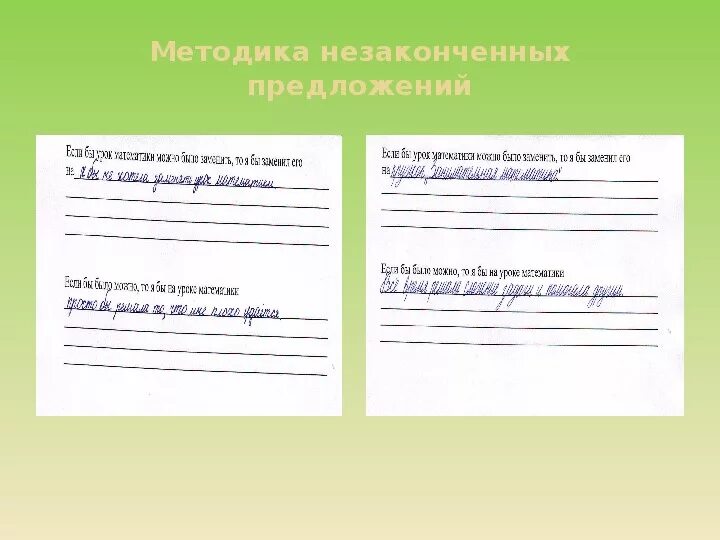 Методика незаконченных
предложений
Если бы урок математики можно было заменить, то я бы заменил его
на я бы не хотела заменять урок математики
Если бы было можно, то я бы на уроке математики
просто бы решала то, что мне плохо удаётся.
Если бы урок математики можно было заменить, то я бы заменил его
на кружок "Занимательная математика"
Если бы было можно, то я бы на уроке математики
Всё время решала сложные задачи и помогала другим.